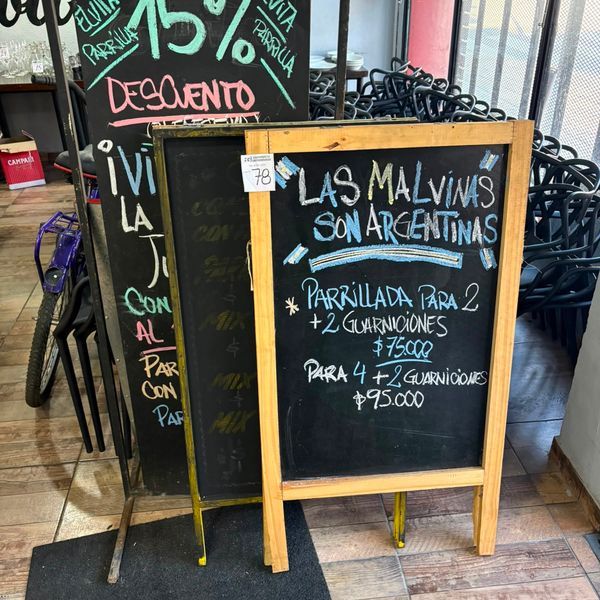 EVITA
PARRILLA
15%
EVITA
PARRILLA
DESCUENTO
¡VI
LA
JU
CON
AL
PAR
CON
PA
CAMPARI
78
LAS MALVINAS
SON ARGENTINAS
* PARRILLADA PARA 2
+2 GUARNICIONES
$75.000
PARA 4 +2 GUARNICIONES
$95.000
MIX
&
MIX
&
MIX